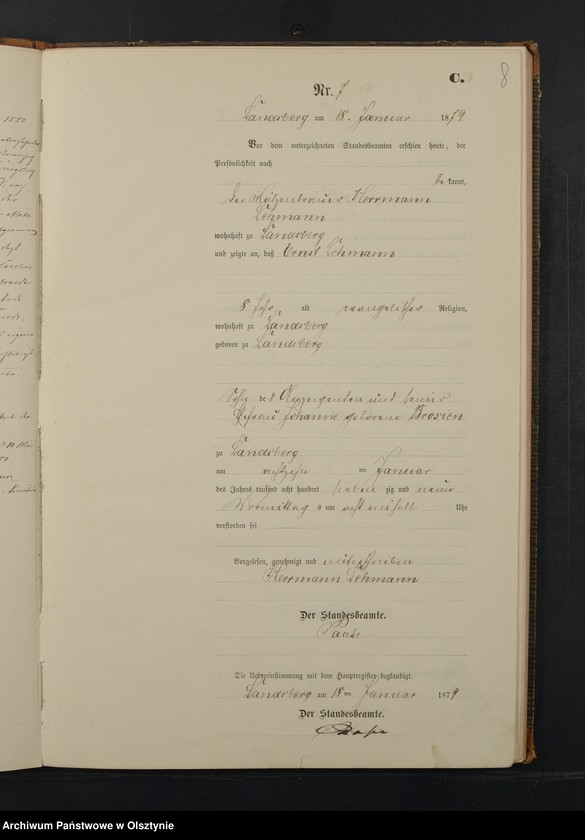 C.
8
Nr. 7
Landsberg am 18. Januar 1879
Vor dem unterzeichneten Standesbeamten erschien heute, der
Persönlichkeit nach
be kannt,
der Herrmann
Lehmann
wohnhaft zu Landsberg
und zeigte an, daß Ernst Lehmann
8 Jahr alt evangelischer Religion,
wohnhaft zu Landsberg
geboren zu Landsberg
Sohn des Anzeigenden und seiner
Ehefrau Johanne geborene Brosien
zu Landsberg
am achtzehn ten Januar
des Jahres tausend acht hundert sieben zig und neun
Vormittag s um acht einhalb Uhr
verstorben sei
Vorgelesen, genehmigt und unterschrieben
Herrmann Lehmann
Der Standesbeamte.
Die Uebereinstimmung mit dem Hauptregister beglaubigt.
Landsberg am 18 ten Januar 1879
Der Standesbeamte.
Archiwum Państwowe w Olsztynie